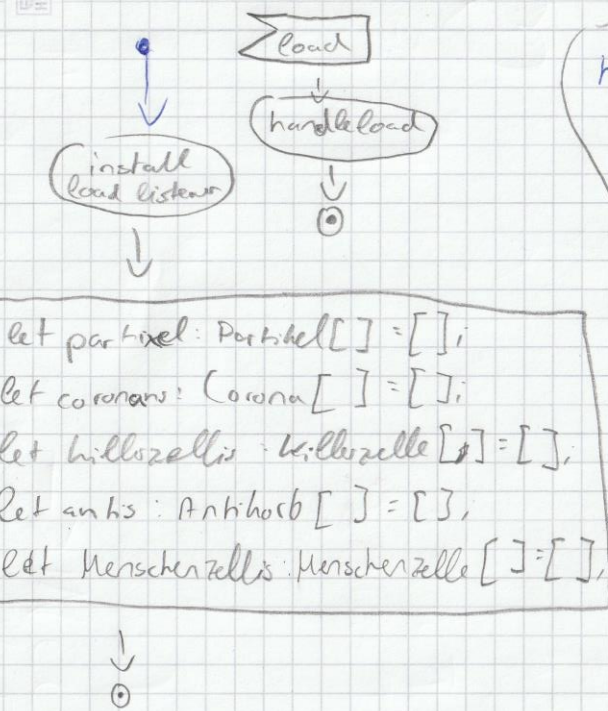 load
handleload
install
load listener
let partixel: Partikel[ ] = [];
let coronans: Corona[ ] = [];
let killerzellis: Killerzelle[ ] = [];
let antis: Antikorb[ ] = [],
let Menschenzellis: Menschenzelle[ ] = [],